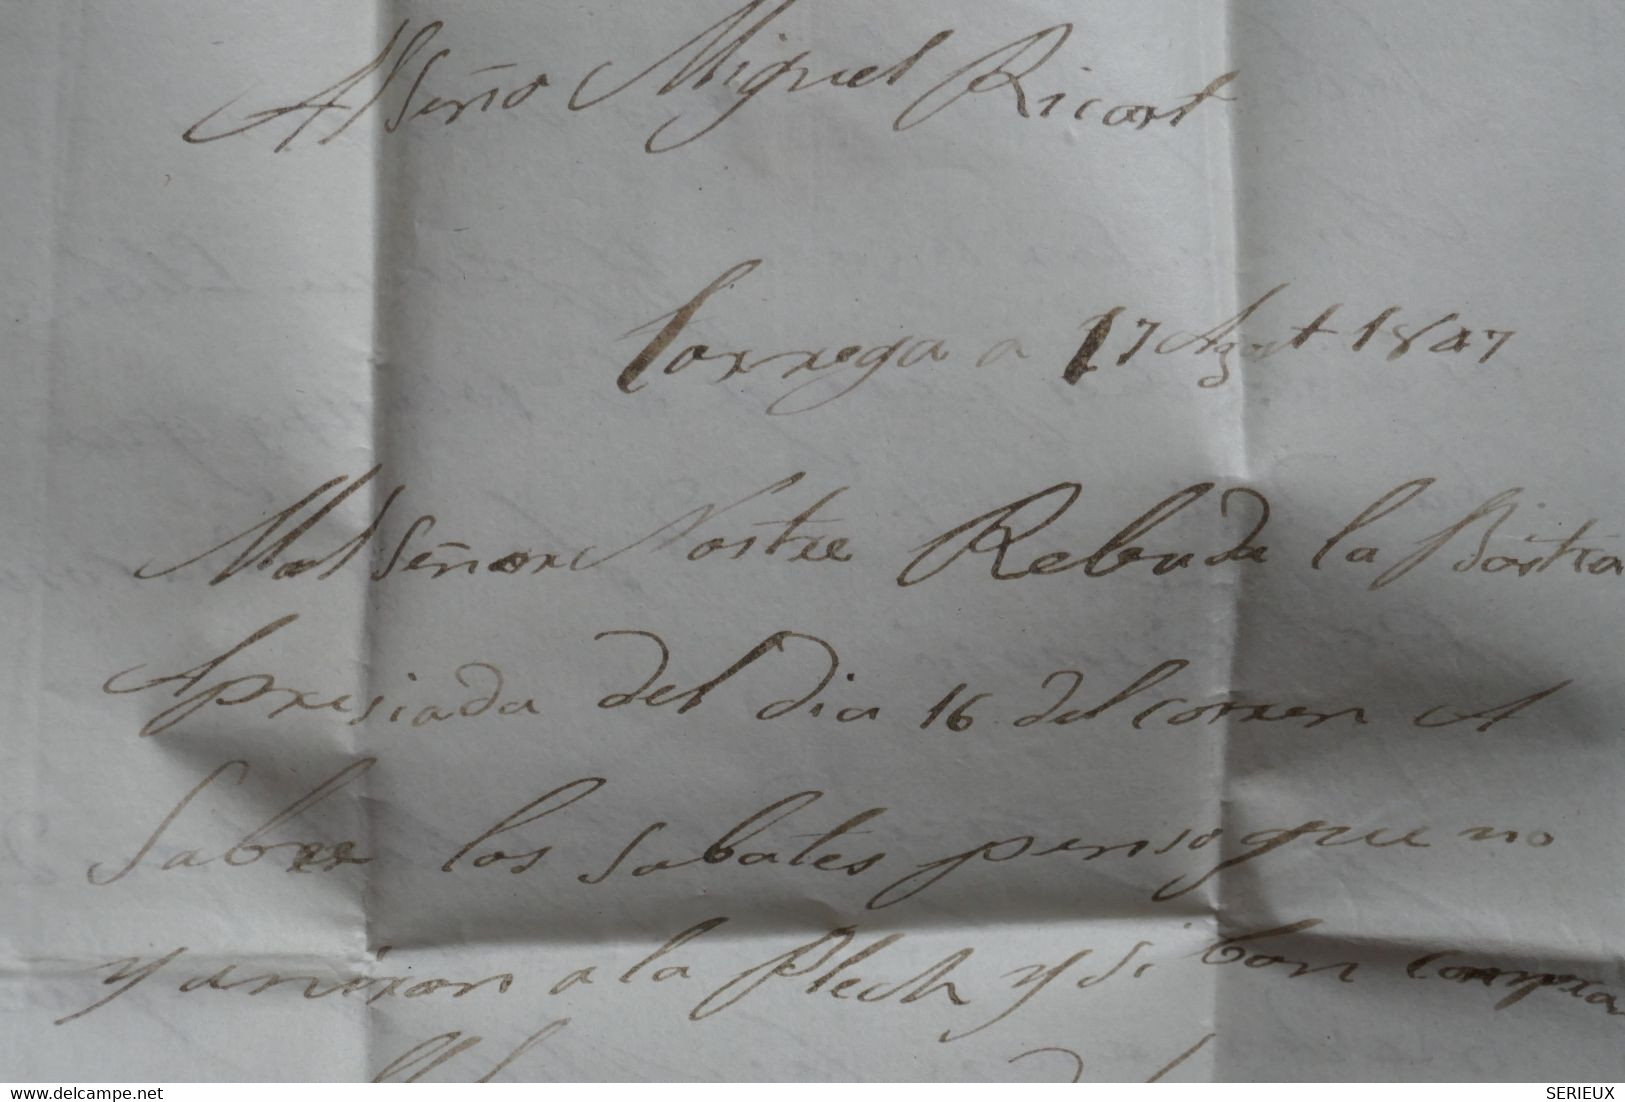 Al Señor Miguel Ricart
Tarrega a 17 Agost 1847
Mol Señor Nostre Rebuda la Bostra
Apresiada del dia 16 del corren A
Sabre los sabates penso que no
y aniran a la Plech y si bon compra
delcampe.net
SERIEUX